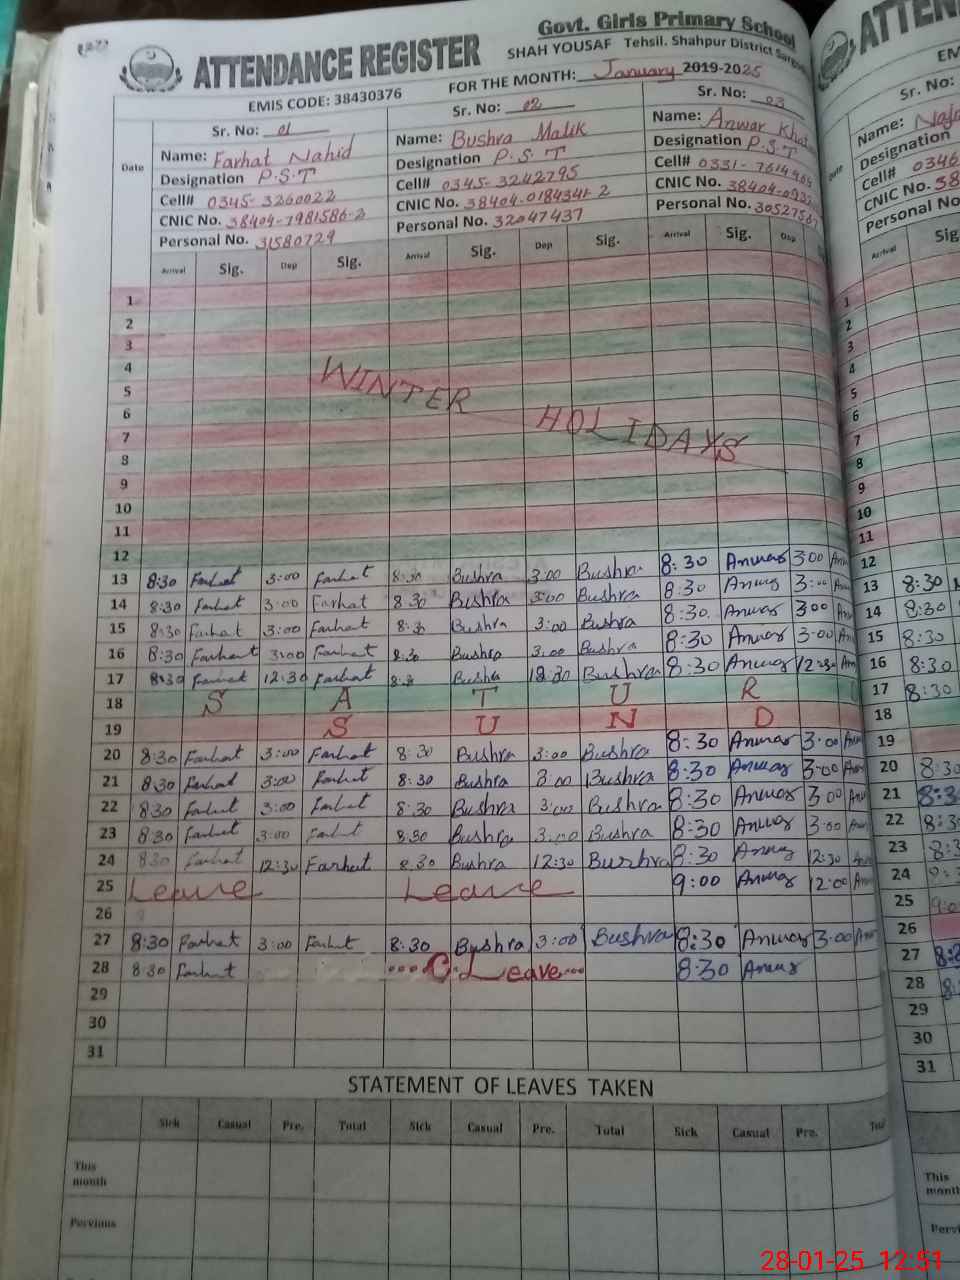 Govt. Girls Primary School
ATTENDANCE REGISTER SHAH YOUSAF Tehsil. Shahpur District
EMIS CODE: 38430376 FOR THE MONTH: January 2019-2025
Date
Sr. No: 01
Name: Farhat Nahid
Designation P.S.T
Cell# 0345-3260022
CNIC No. 38404-7981586-2
Personal No. 31580729
Sr. No: 02
Name: Bushra Malik
Designation P.S.T
Cell# 0345-3242795
CNIC No. 38404-0184341-2
Personal No. 32047437
Sr. No: 03
Name: Anwar
Designation P.S.T
Cell# 0331-7614
CNIC No. 38404-
Personal No. 305275
Arrival Sig. Dep Sig. Arrival Sig. Dep Sig. Arrival Sig. Dep
1
2
3
4
5
6
7
8
9
10
11
12
WINTER HOLIDAYS
13 8:30 Farhat 3:00 Farhat 8:30 Bushra 3:00 Bushra 8:30 Anwar 3:00
14 8:30 Farhat 3:00 Farhat 8:30 Bushra 3:00 Bushra 8:30 Anwar 3:00
15 8:30 Farhat 3:00 Farhat 8:3 Bushra 3:00 Bushra 8:30 Anwar 3:00
16 8:30 Farhat 3:00 Farhat 8:30 Bushra 3:00 Bushra 8:30 Anwar 3:00
17 8:30 Farhat 12:30 Farhat 8:3 Bushra 12:30 Bushra 8:30 Anwar 12:30
18 S A T U R
19 S U N D
20 8:30 Farhat 3:00 Farhat 8:30 Bushra 3:00 Bushra 8:30 Anwar 3:00
21 8:30 Farhat 3:00 Farhat 8:30 Bushra 3:00 Bushra 8:30 Anwar 3:00
22 8:30 Farhat 3:00 Farhat 8:30 Bushra 3:00 Bushra 8:30 Anwar 3:00
23 8:30 Farhat 3:00 Farhat 8:30 Bushra 3:00 Bushra 8:30 Anwar 3:00
24 8:30 Farhat 12:30 Farhat 8:30 Bushra 12:30 Bushra 8:30 Anwar 12:30
25 Leave Leave 9:00 Anwar 12:00
26
27 8:30 Farhat 3:00 Farhat 8:30 Bushra 3:00 Bushra 8:30 Anwar 3:00
28 8:30 Farhat C. Leave 8:30 Anwar
29
30
31
STATEMENT OF LEAVES TAKEN
Sick Casual Pre. Total Sick Casual Pre. Total Sick Casual Pre.
This month
Pervious
Sr. No:
Name:
Designation
Cell# 0346
CNIC No.
Personal No.
Arrival
1
2
3
4
5
6
7
8
9
10
11
12
13 8:30
14 8:30
15 8:30
16 8:30
17 8:30
18
19
20 8:30
21
22
23
24
25
26
27
28
29
30
31
This month
28-01-25 12:51